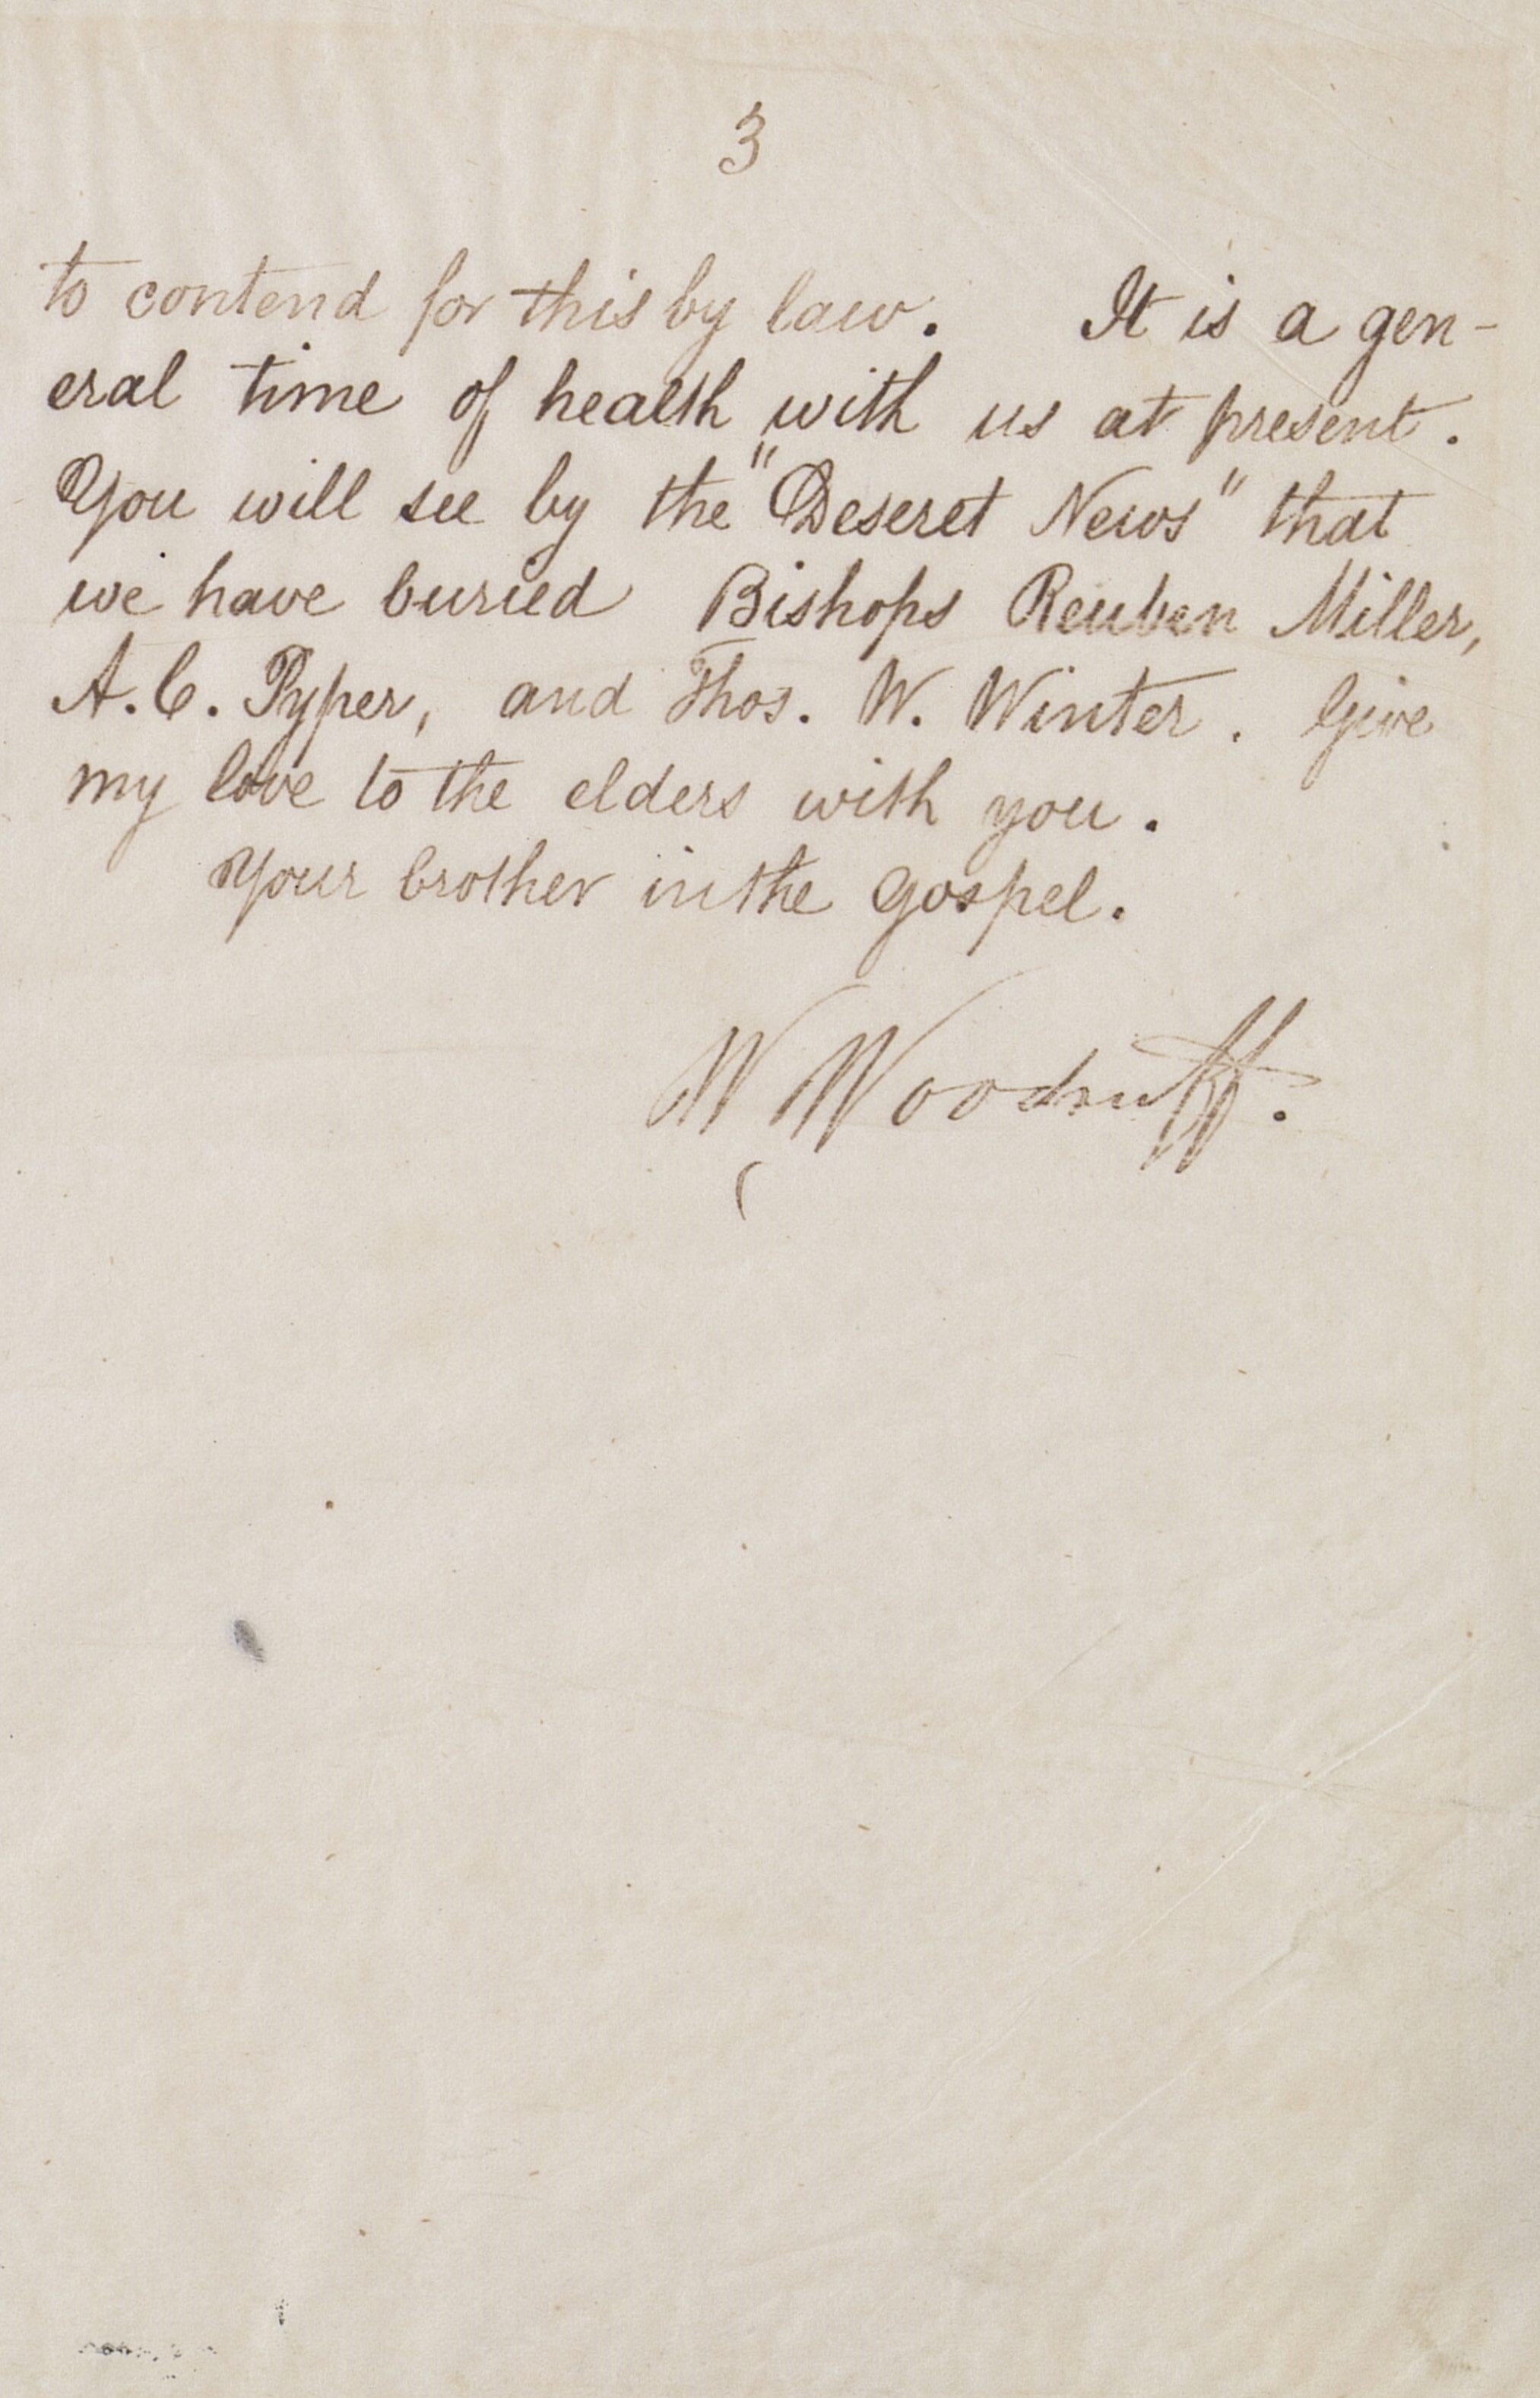 3
to contend for this by law. It is a gen-
eral time of health with us at present.
You will see by the "Deseret News" that
we have buried Bishops Reuben Miller,
A. C. Pyper, and Thos. W. Winter. Give
my love to the elders with you.
Your brother in the Gospel.
W Woodruff.